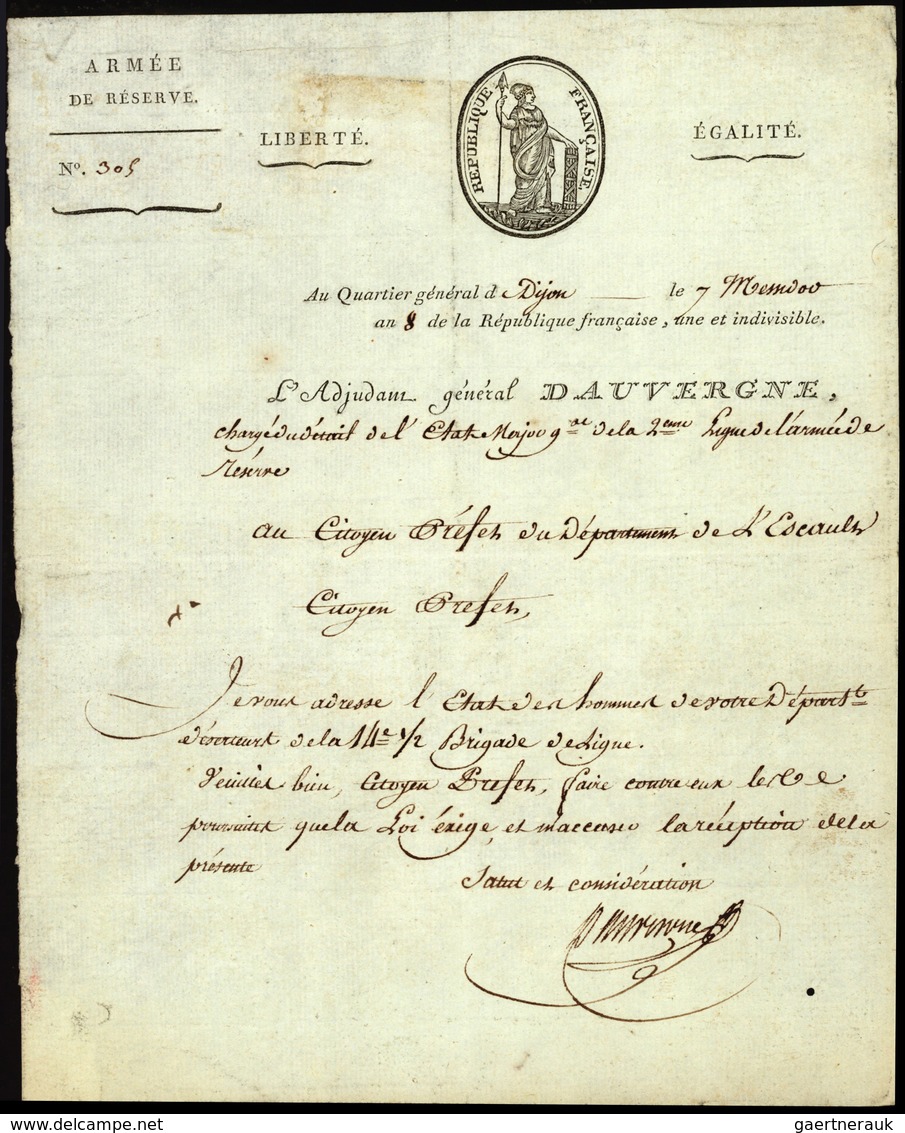 ARMÉE
DE RÉSERVE.
Nº. 305
LIBERTÉ.
RÉPUBLIQUE FRANÇAISE
ÉGALITÉ.
Au Quartier général d Dijon le 7 Messidor
an 8 de la République française, une et indivisible.
L'Adjudant général DAUVERGNE,
chargé du détail de l'Etat Major gal de la 2eme Ligne de l'armée de
réserve
au Citoyen Préfet du Département de L'Escault
Citoyen Préfet,
Je vous adresse l'Etat des hommes de votre Départt
déserteurs de la 14e 1/2 Brigade de Ligne.
Veuillés bien, Citoyen Préfet, faire contre eux les
poursuites que la Loi éxige, et m'accuser la réception de la
présente
Salut et considération
Dauvergne
gaertnerauk